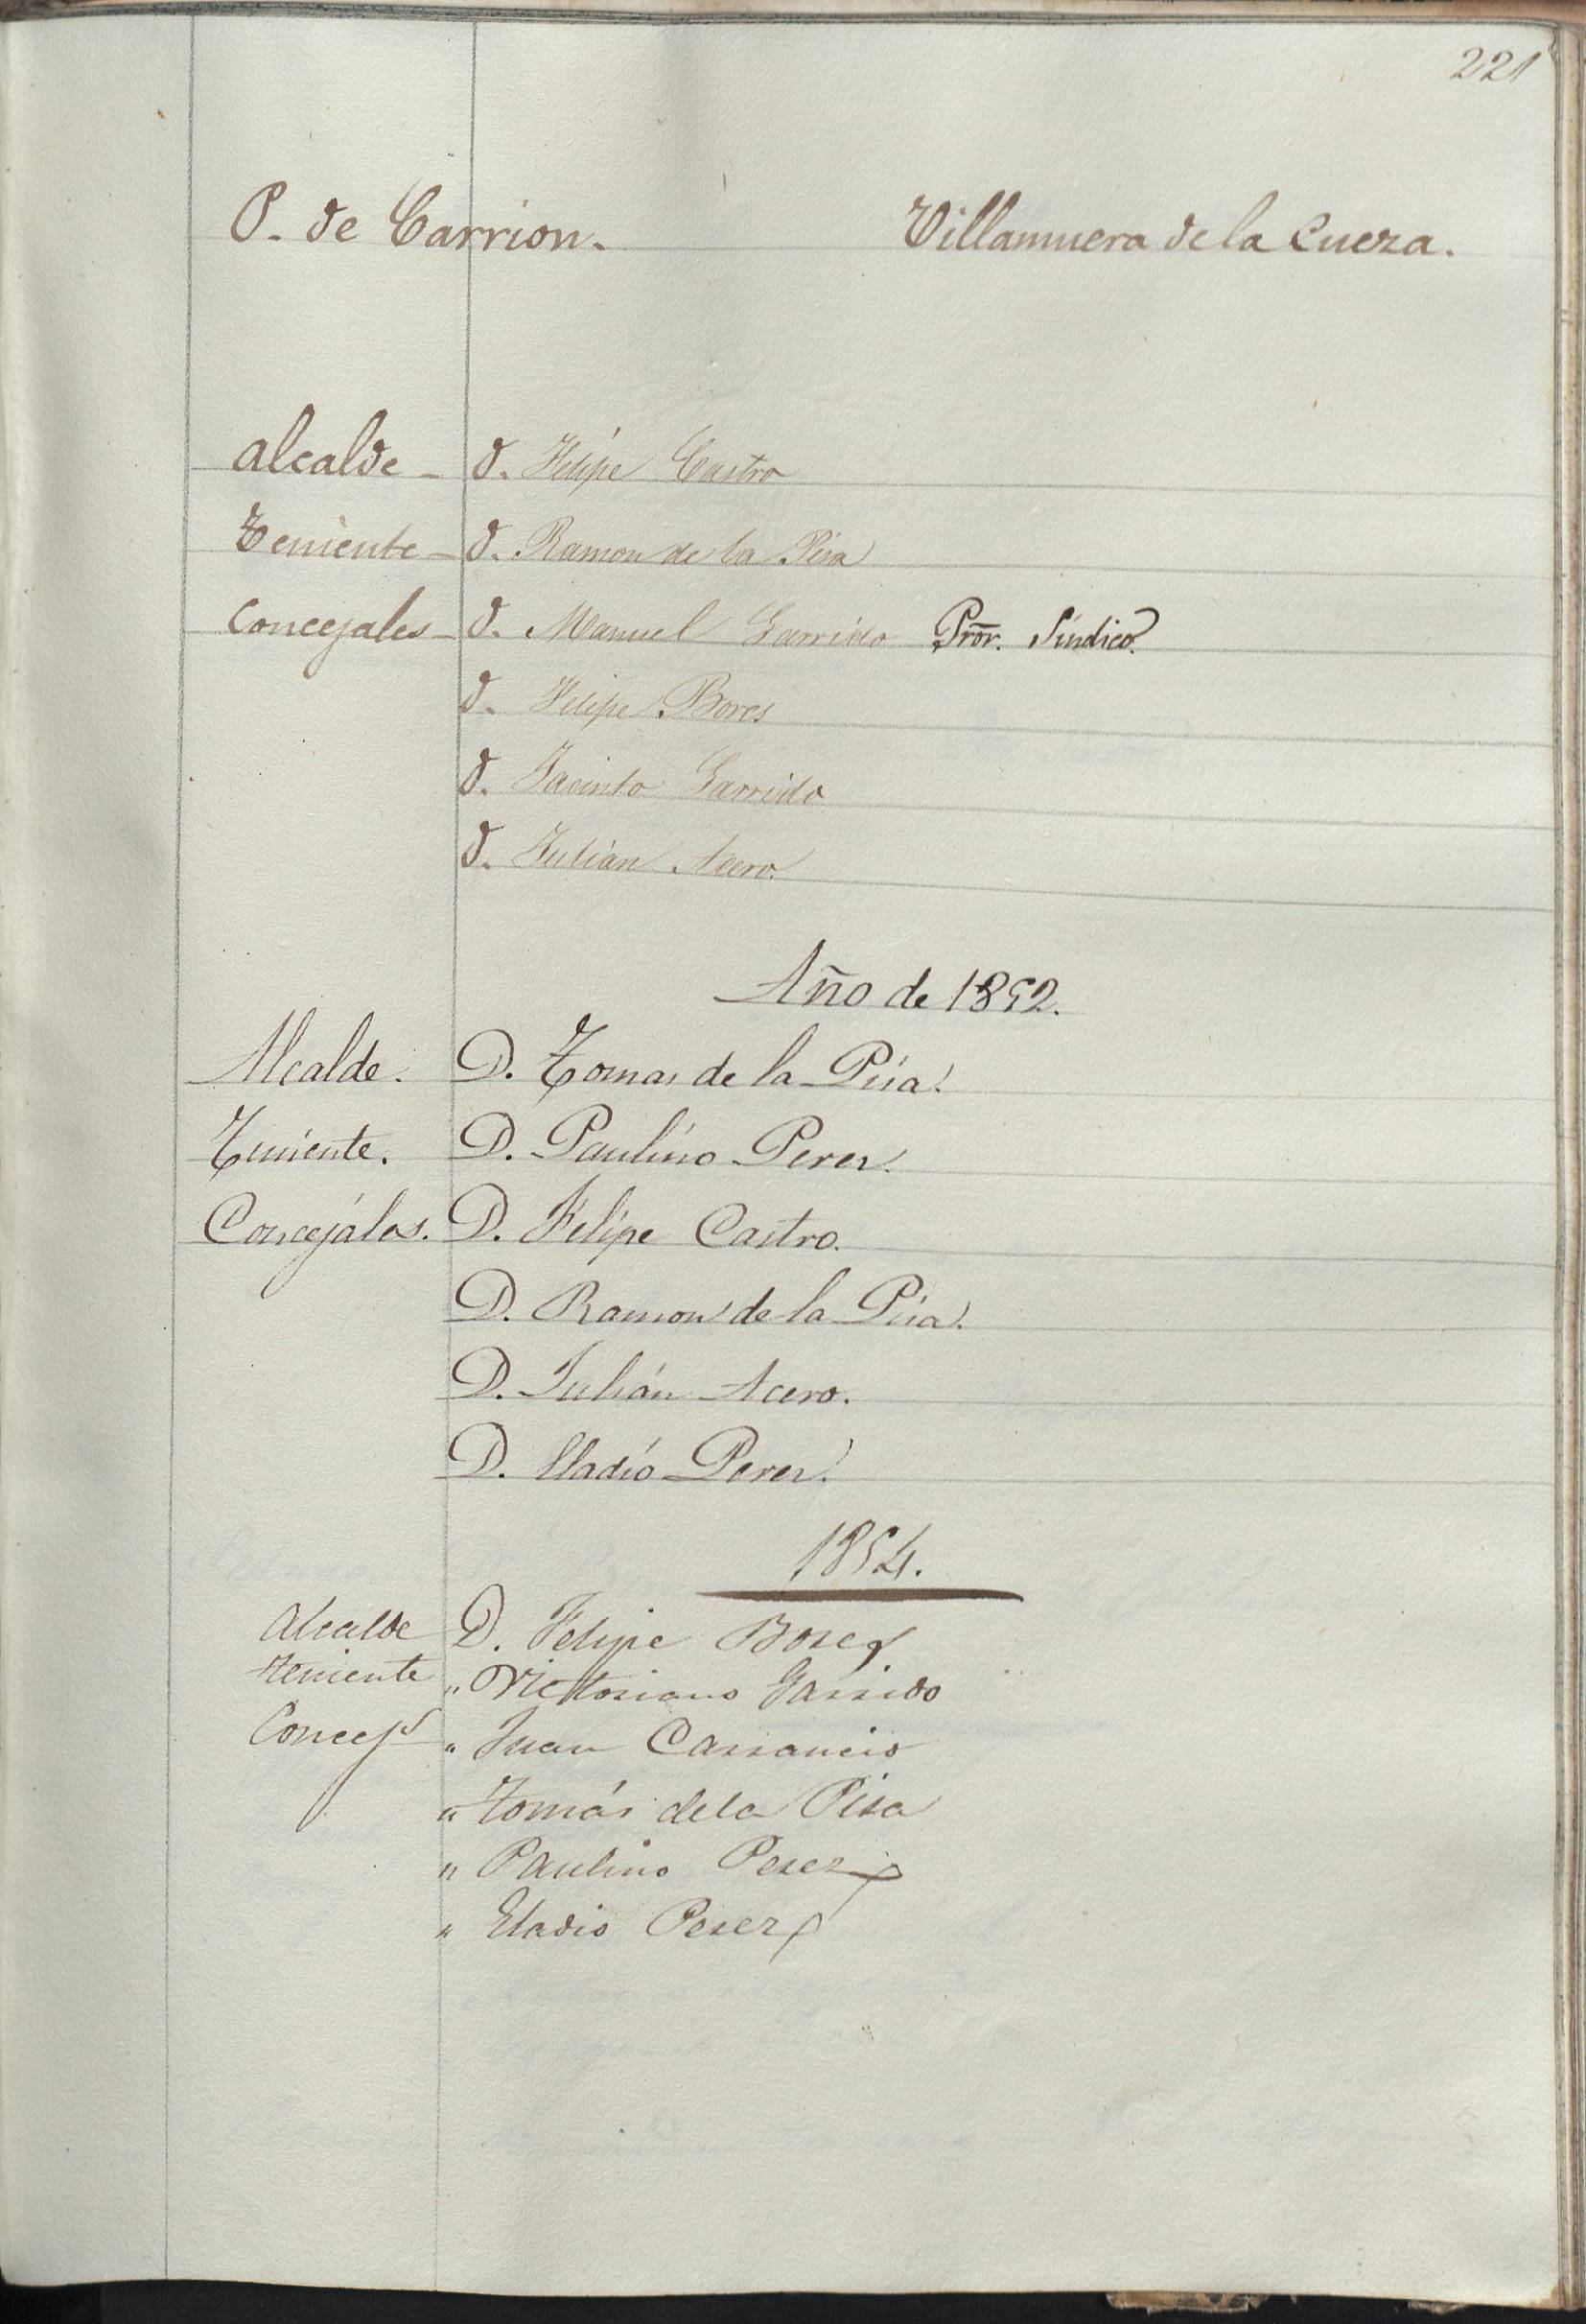 221
P. de Carrion. Villamuera de la Cueza.
Alcalde - D. Felipe Castro
Teniente - D. Ramon de la Pisa
Concejales - D. Manuel Garrido Pror. Síndico.
D. Felipe Bores
D. Jacinto Garrido
D. Julian Acero.
Año de 1852.
Alcalde. D. Tomas de la Pisa.
Teniente. D. Paulino Perez.
Concejales. D. Felipe Castro.
D. Ramon de la Pisa.
D. Julián Acero.
D. Eladio Perez.
1854.
Alcalde D. Felipe Bores
Teniente " Victoriano Garrido
Concejs " Juan Carrancio
" Tomás de la Pisa
" Paulino Perez
" Eladio Perez